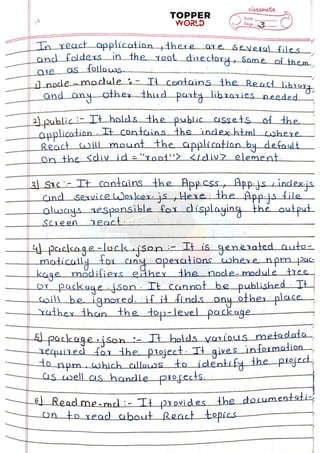 classmate
TOPPER
WORLD
Date
Page 3
In react application, there are several files
and folders in the root directory, Some of them
are as follows.
1) node-module :- It contains the React library
and any other third party libraries needed.
2) public :- It holds the public assets of the
application. It contains the index.html where
React will mount the application by default
on the <div id = "root"> </div> element.
3) Src :- It contains the App.css, App.js, index.js
and serviceWorker.js, Here the App.js file
always responsible for displaying the output
screen react.
4) package-lock.json :- It is generated auto-
matically for any operations where npm pac-
kage modifiers either the node-module tree
or package.json. It cannot be published. It
will be ignored if it finds any other place
rather than the top-level package.
5) package.json :- It holds various metadata
required for the project. It gives information
to npm, which allows to identify the project
as well as handle projects.
6) Readme.md :- It provides the documentati-
on to read about React topics